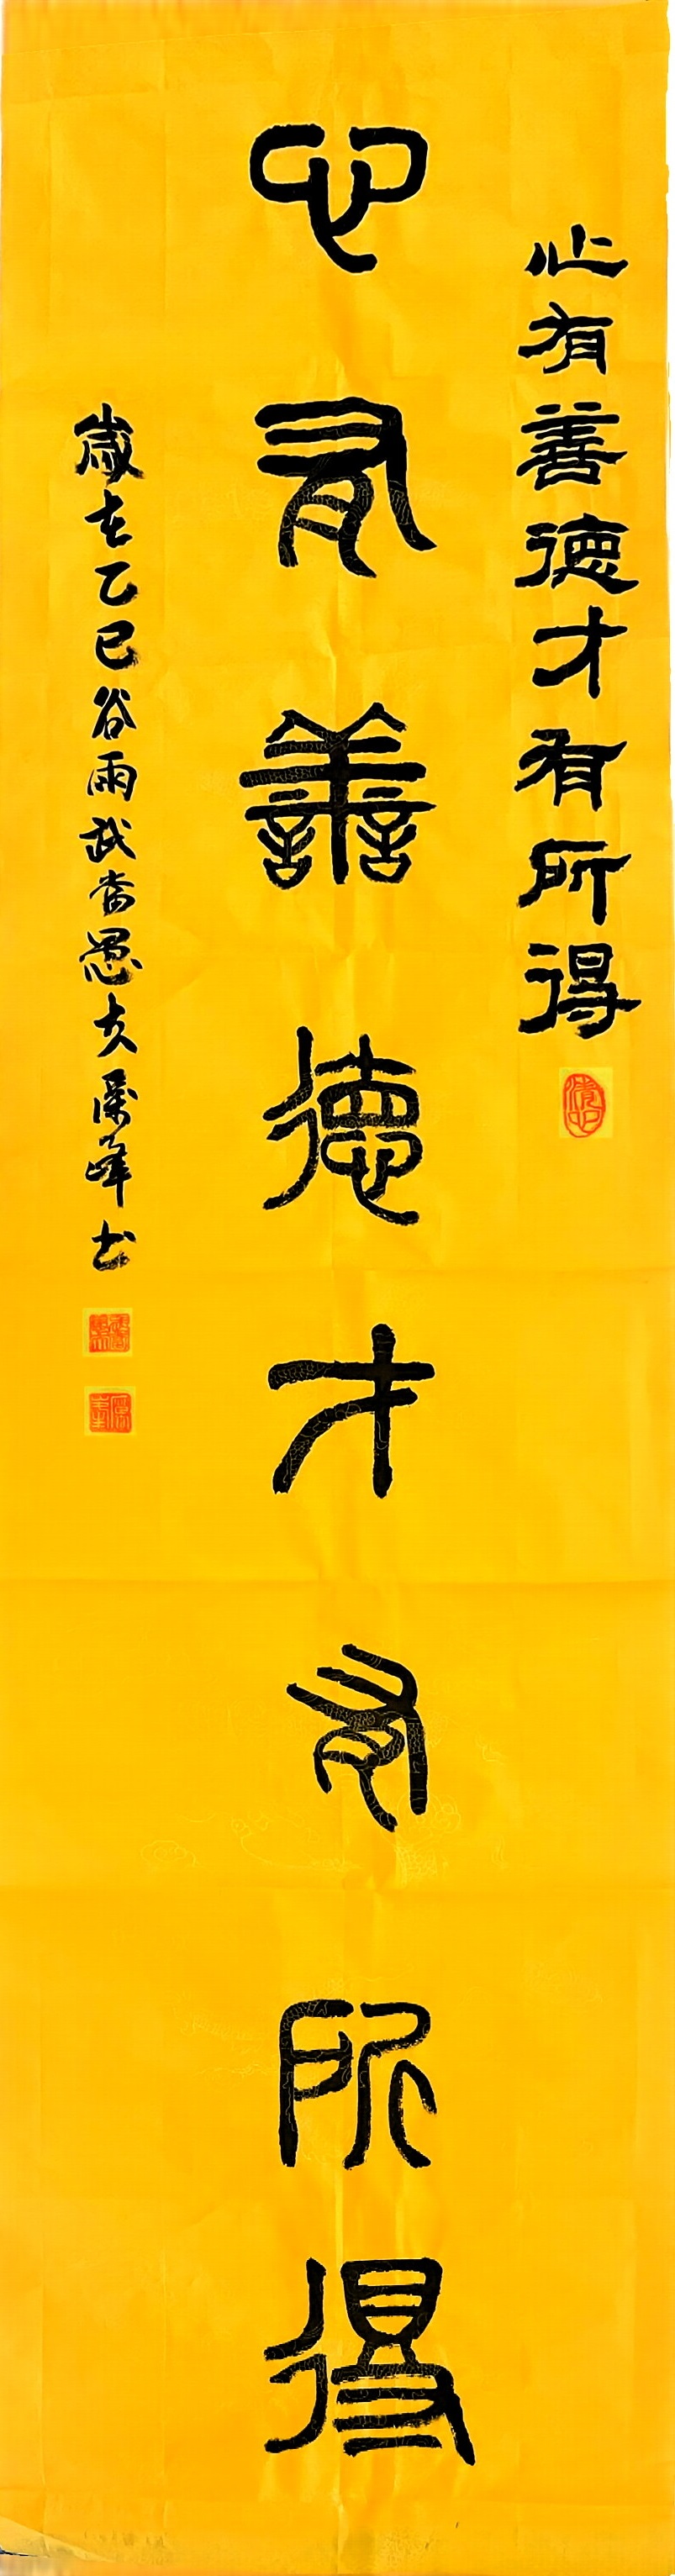 心有善德才有所得
心有善德才有所得
歲在乙巳谷雨武當愚夫峰书